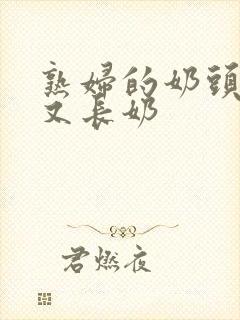 熟婦的奶頭
又長奶
君燃夜